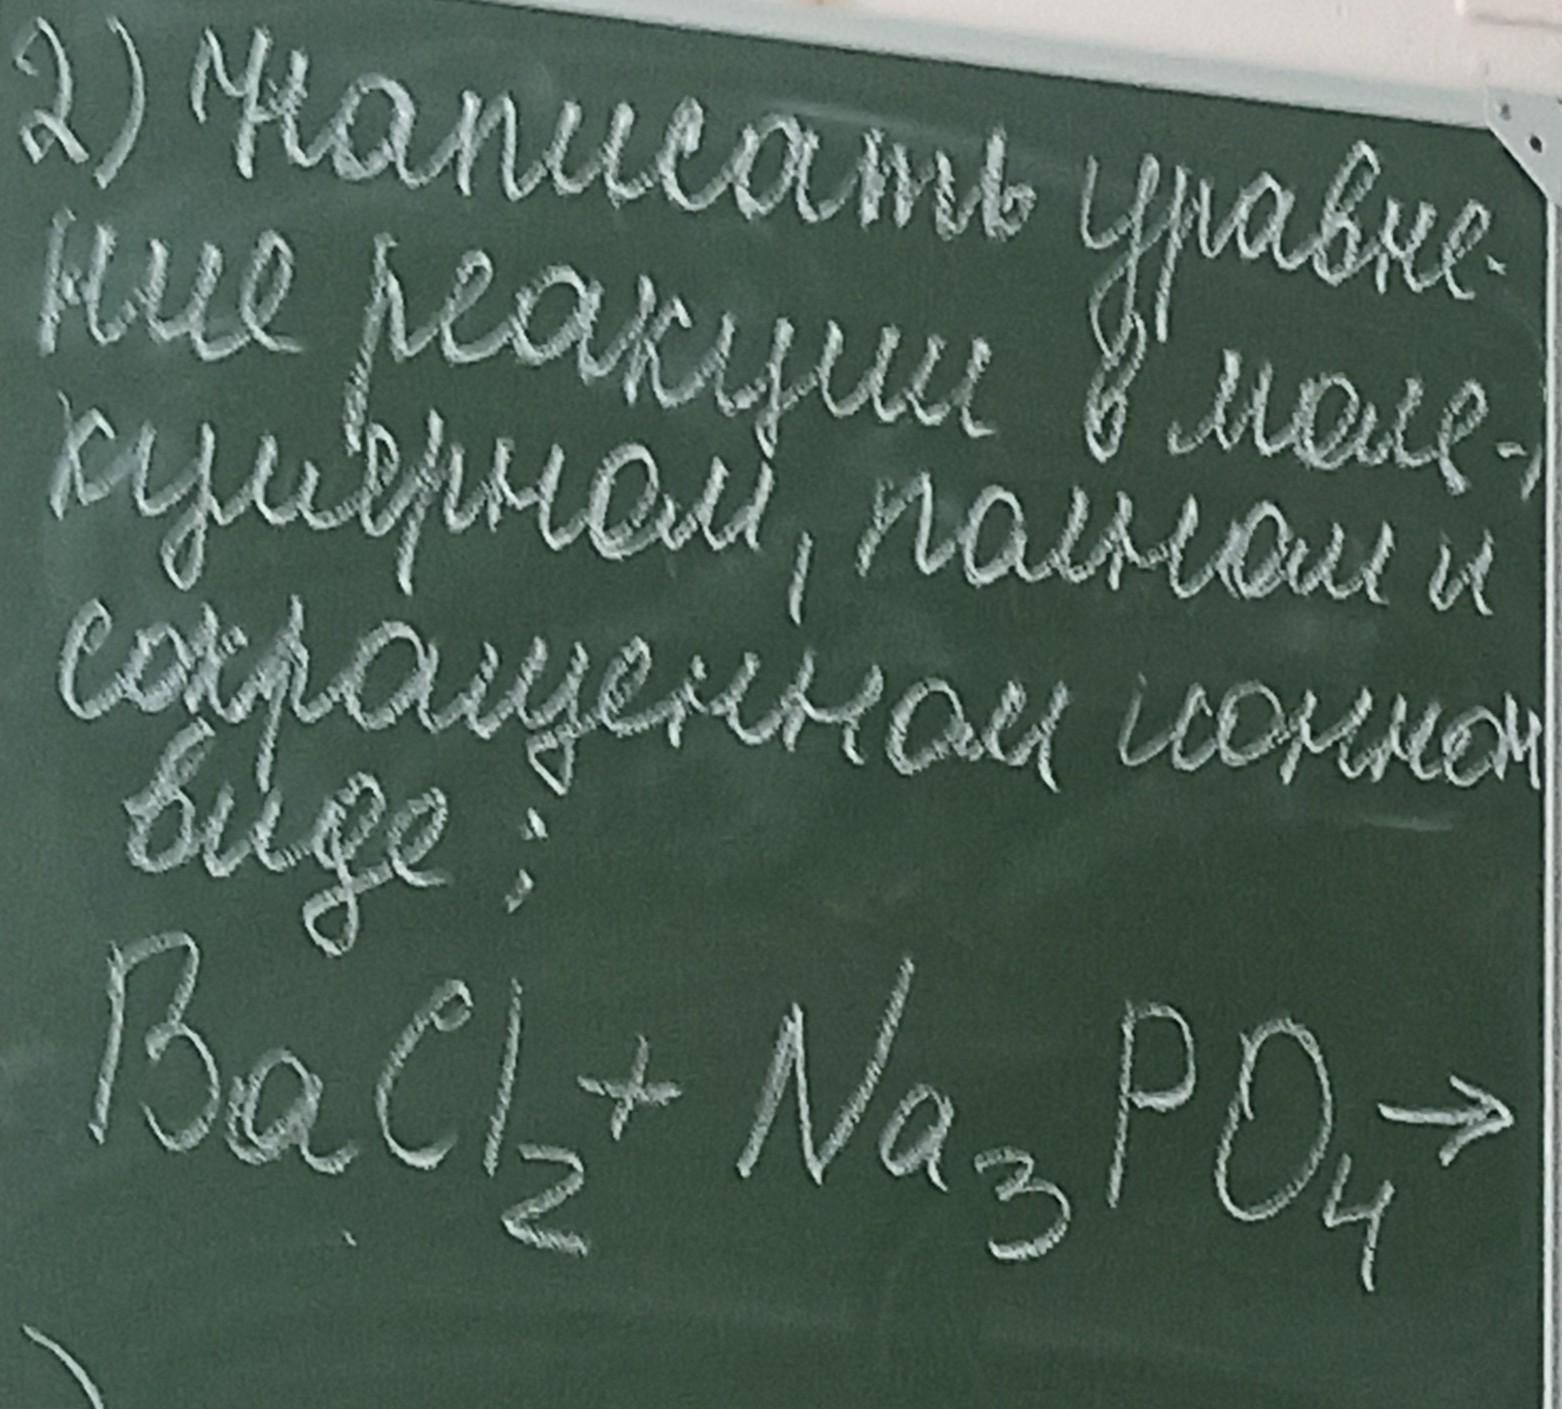 2) Написать уравне-
ние реакции в моле-
кулярном, полном и
сокращенном ионном
виде:
BaCl₂ + Na₃PO₄ →